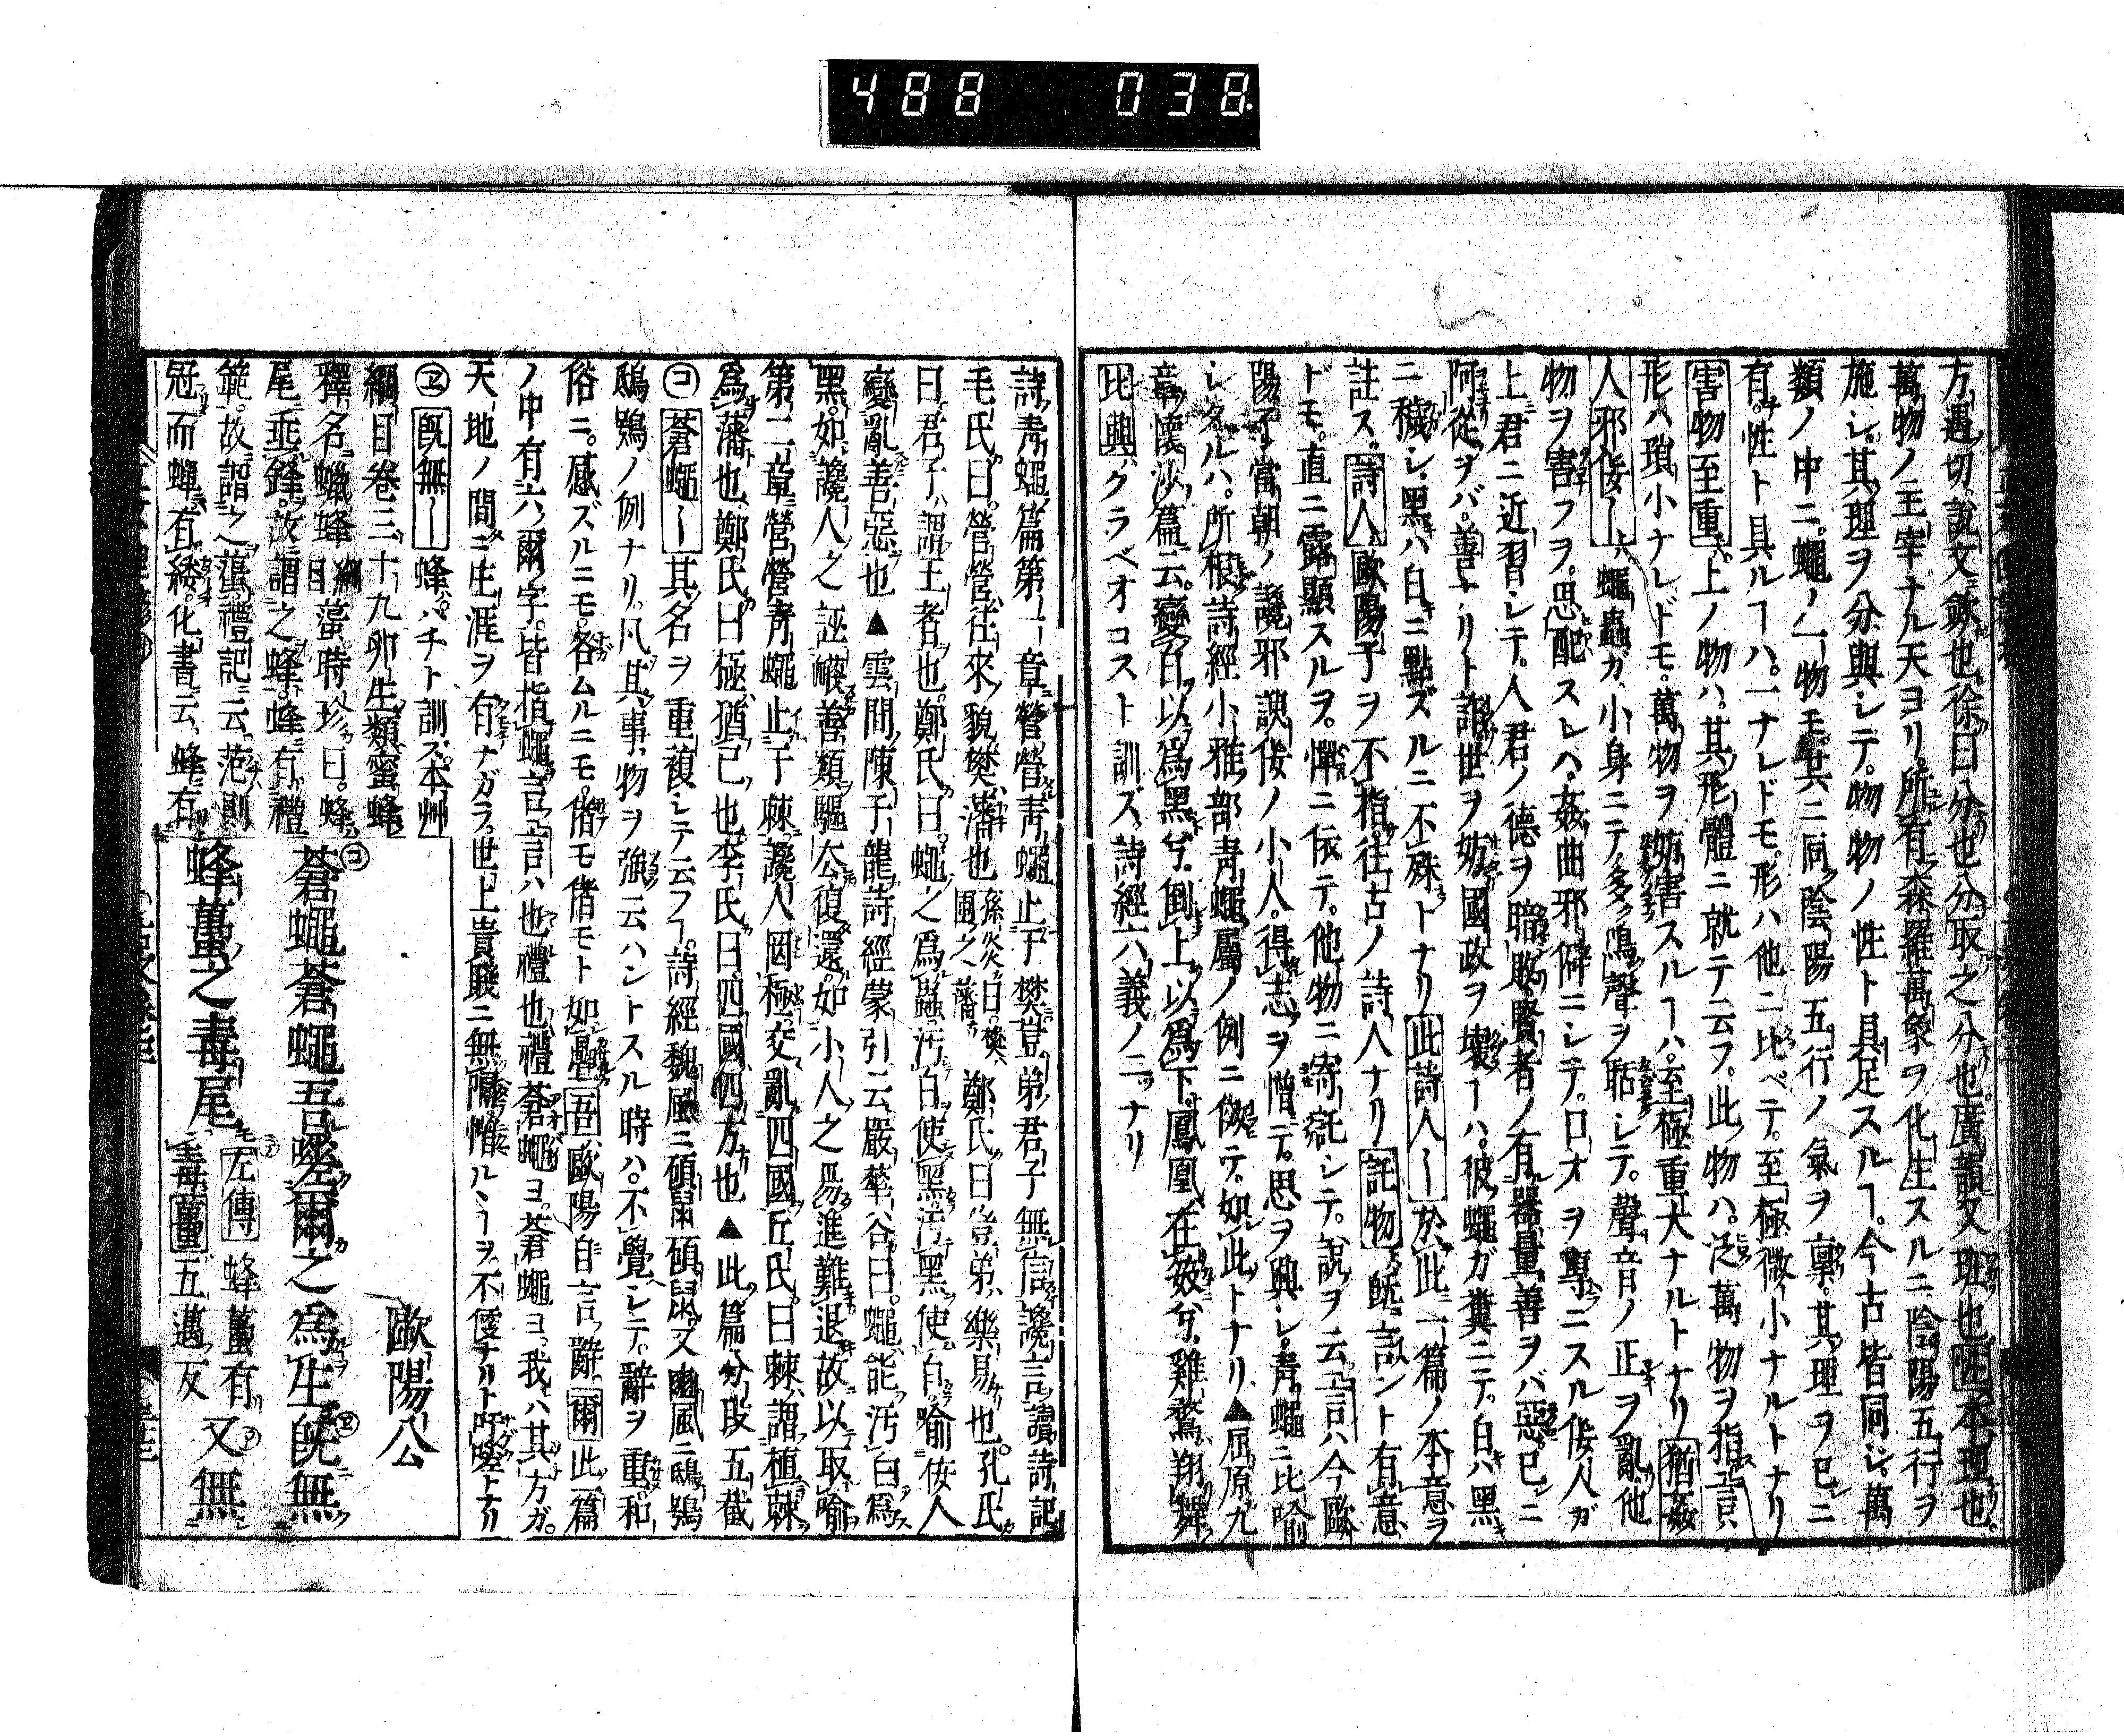 488 038
方遇切。說文歛也徐曰分也分取之分也廣韻又班也性本理也。
萬物ノ主宰ナル天ヨリ。所有森羅萬象ヲ化生スルニ陰陽五行ヲ
施シ。其理ヲ分與シテ。物物ノ性ト具足スルヿ。今古皆同シ。萬
類ノ中ニ。蠅ノ一物モ。其ニ同陰陽五行ノ氣ヲ稟。其理ヲ已ニ
有。性ト具ルヿハ。一ナレドモ。形ハ他ニ比ベテ。至極微小ナルトナリ
害物至重 上ノ物ハ。其形體ニ就テ云フ。此物ハ。泛萬物ヲ指言ハ
形ハ瑣小ナレドモ。萬物ヲ妨害スルヿハ。至極重大ナルトナリ 猶姦
人邪佞〡 蠅蟲ガ小身ニテ多鳴聲ヲ聒シテ。聲音ノ正ヲ亂他
物ヲ害フヲ。思配スレハ。姦曲邪僻ニシテ。口才ヲ專ニスル佞人ガ
上君ニ近習シテ。人君ノ德ヲ瞎敗。賢者ノ有器量善ヲバ惡。已ニ
阿從ヲバ。善ナリト謂世ヲ妨國政ヲ壞ヿハ。彼蠅ガ糞ニテ。白ハ黑
ニ穢シ。黑ハ白ニ點ズルニ不殊トナリ 此詩人〡 於此一篇ノ本意ヲ
註ス。詩人 歐陽子ヲ不指。往古ノ詩人ナリ 託物 旣言ント有意
ドモ。直ニ露顯スルヲ。憚ニ依テ。他物ニ寄託シテ。說ヲ云。言ハ今歐
陽子當朝ノ讒邪諛佞ノ小人。得志ヲ憎テ。思ヲ興シ。靑蠅ニ比喻
シタルハ。所根詩經小雅部靑蠅屬ノ例ニ倣テ。如此トナリ▲屈原九
章懷沙篇云。變白以爲黑兮。倒上以爲下。鳳凰在笯兮。雞鶩翔舞
比興 クラベオコスト訓ズ。詩經六義ノ二ツナリ
詩靑蠅篇第一章營營靑蠅止于樊豈弟君子無信讒言讀詩記
毛氏曰。營營往來貌樊藩也 孫炎曰樊圃之藩 鄭氏曰豈弟樂易也。孔氏
曰君子ハ謂王者也。鄭氏曰。蠅之爲蟲。汚白使黑。汚黑使白。喻佞人
變亂善惡也▲雲間陳子龍詩經蒙引云嚴華谷曰。蠅能汚白爲
黑。如讒人之誣衊善類驅厺復還如小人之易進難退故以取喻
第二章營營靑蠅止于棘。讒人罔極交亂四國丘氏曰棘謂植棘
爲藩也鄭氏曰極猶已也李氏曰。四國四方也▲此篇分段五截
㋙ 蒼蠅〡 其名ヲ重複シテ云フヿ。詩經魏風ニ碩鼠碩鼠又豳風ニ鴟鴞
鴟鴞ノ例ナリ凡其事物ヲ強云ハントスル時ハ。不覺シテ。辭ヲ重。和
俗ニ。感ズルニモ。各ムルニモ。偖モ偖モト如疊 吾 歐陽自言辭 爾 此篇
ノ中有六ノ爾字。皆指蠅言 言ハ也禮也禮蒼蠅ヨ。蒼蠅ヨ。我ハ其方ガ。
天地ノ間ニ生涯ヲ有ナガラ。世上貴賤ニ無隔憎ルヽヿヲ。不便ナリト呼嗟トナリ
㋓ 旣無〡 蜂ハチト訓ス本艸
綱目卷三十九卵生類蜜蜂
釋名蠟蜂 綱目 䖟時珍曰。蜂
尾垂鋒。故謂之蜂。蜂有禮
範。故謂之䖟禮記云。范則
冠而蟬有緌。化書云。蜂有
歐陽公
㋙蒼蠅蒼蠅吾嗟爾之爲生旣㋓無
蜂蠆之毒尾 左傳 蜂蠆有毒 蠆 五邁反 又無